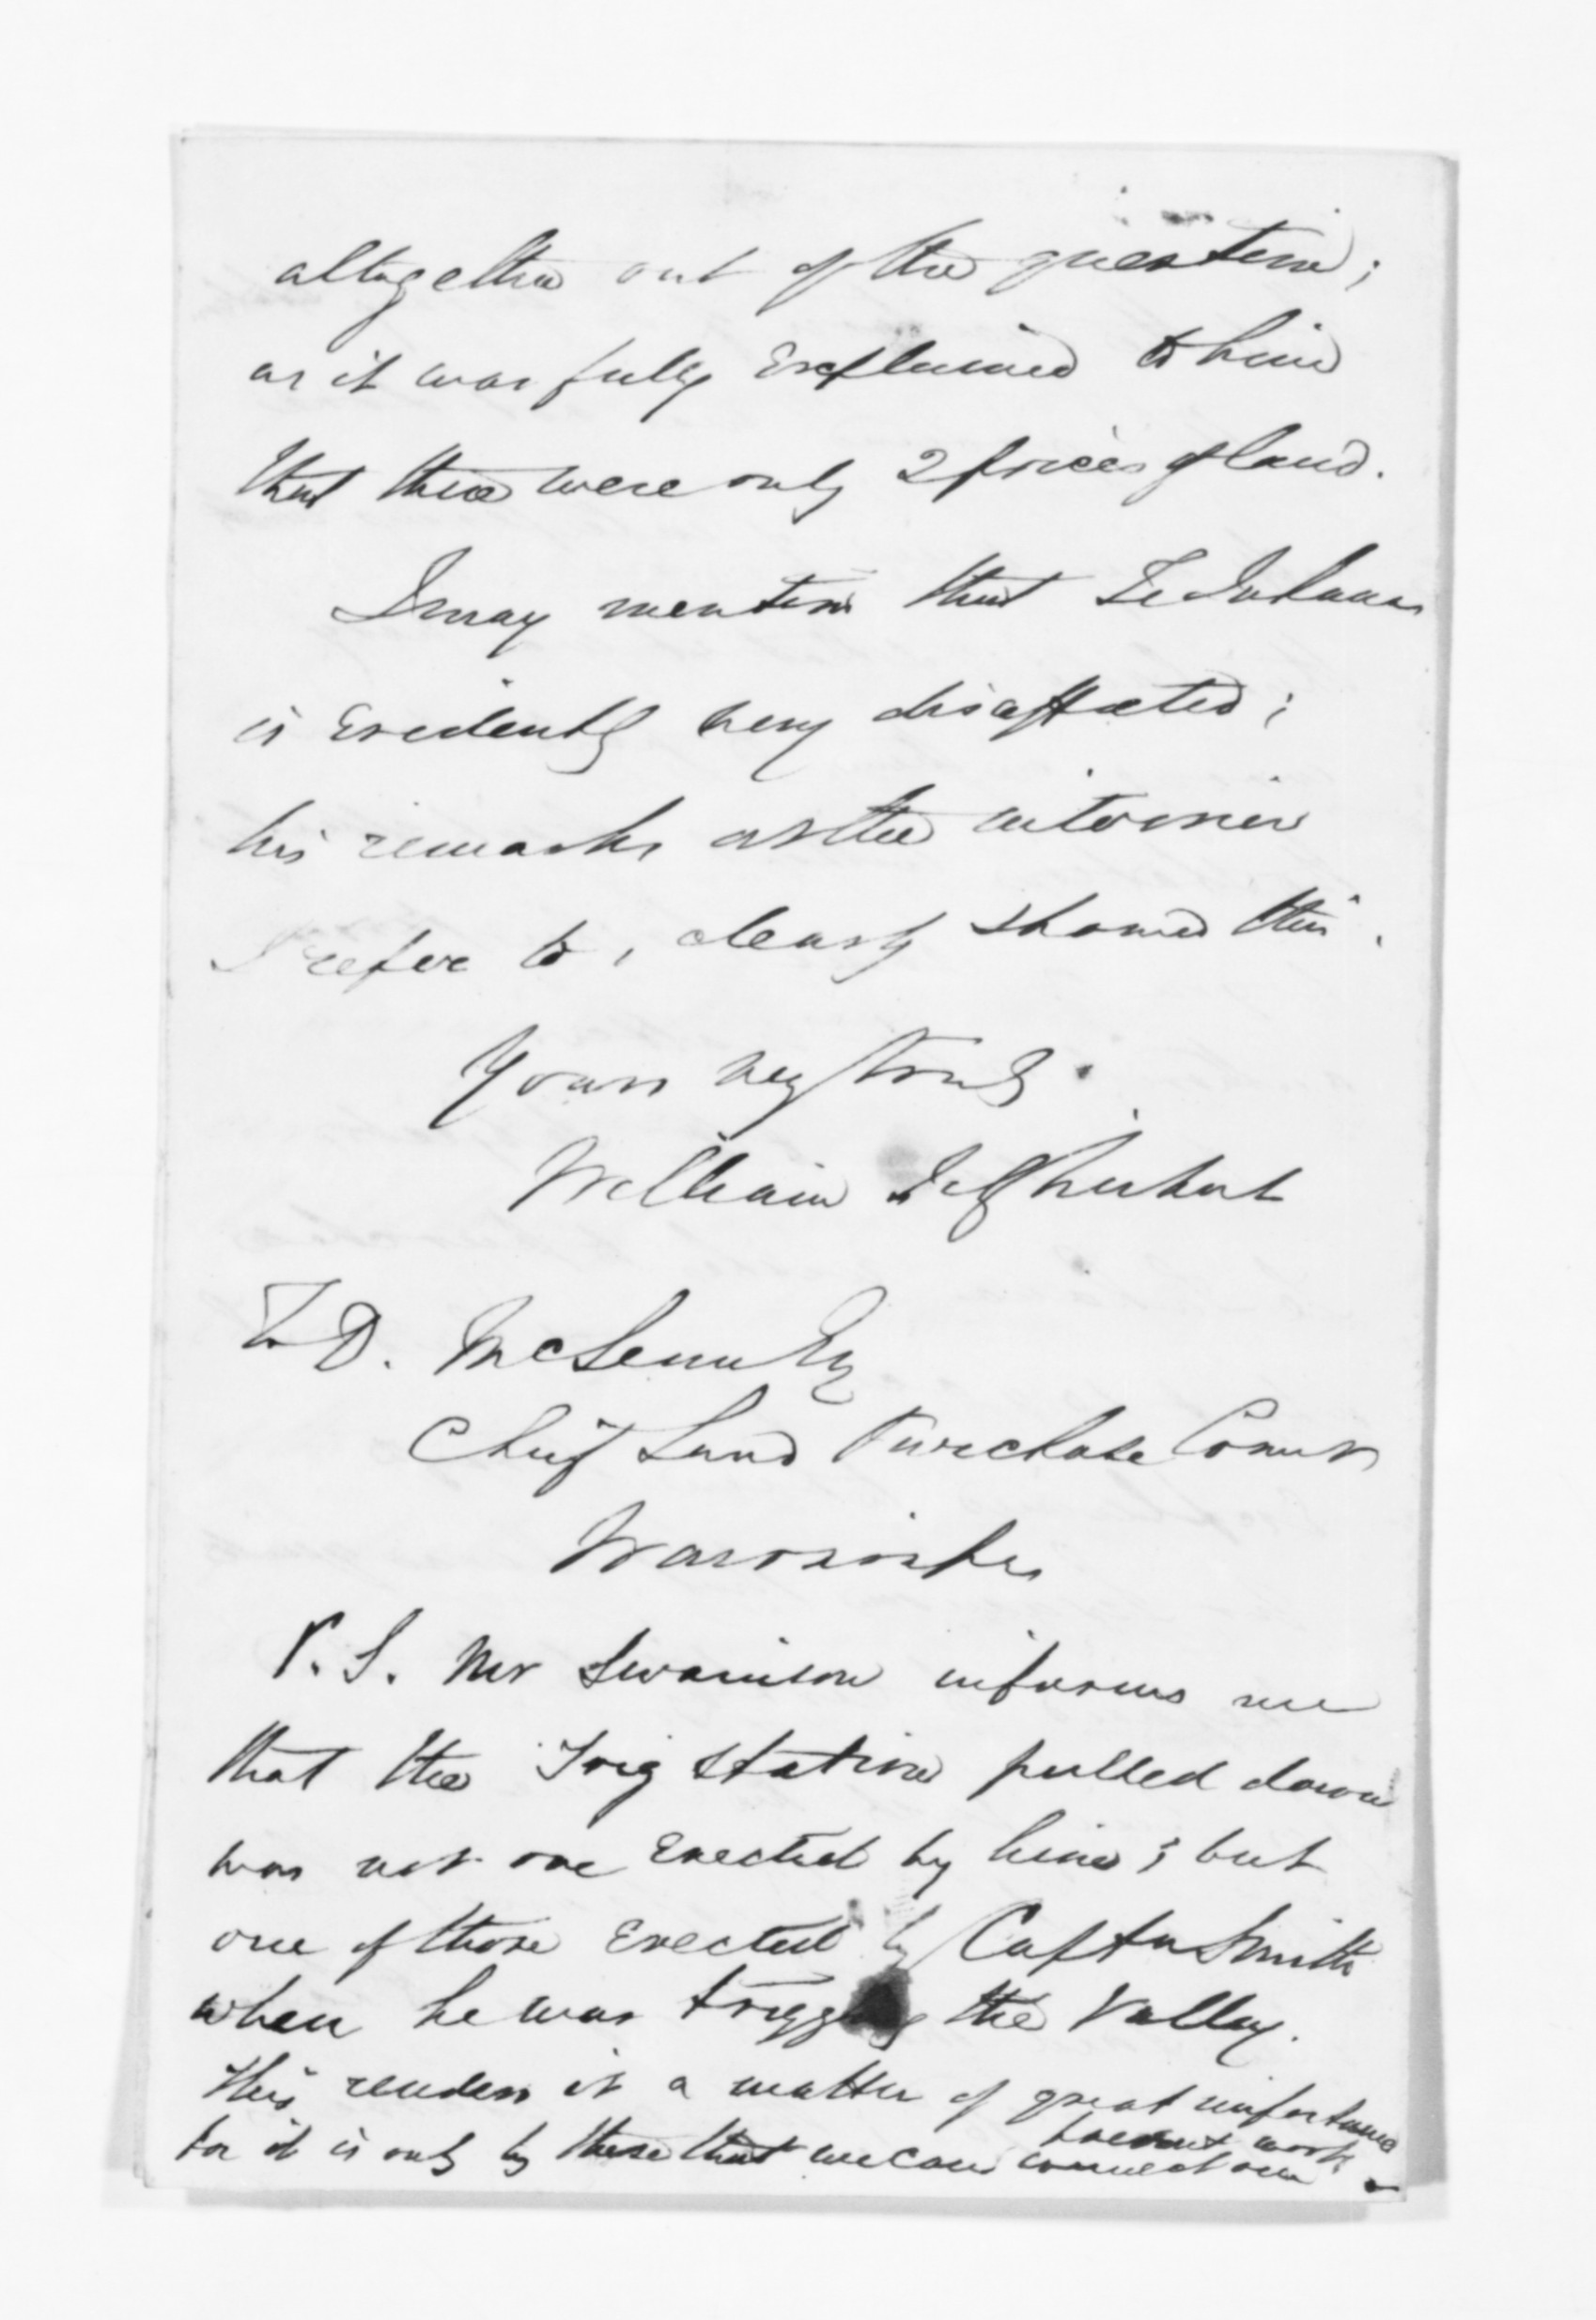 altogether out of the question;
as it was fully Explained to him
that there were only 2 prices of land.
I may mention that Te
is Evidently very disaffected;
his remarks at the interview
I refer to, clearly showed this.
Yours very truly.
William
To D. McLean Esq
Chief Land Purchase Comr
P.S. Mr Swainson informs me
that the Trig Station pulled down
was not one Erected by him; but
one of those Erected by Captn Smith
when he was trigging the Valley.
This renders it a matter of great importance
for it is only by these that we can connect our
present work